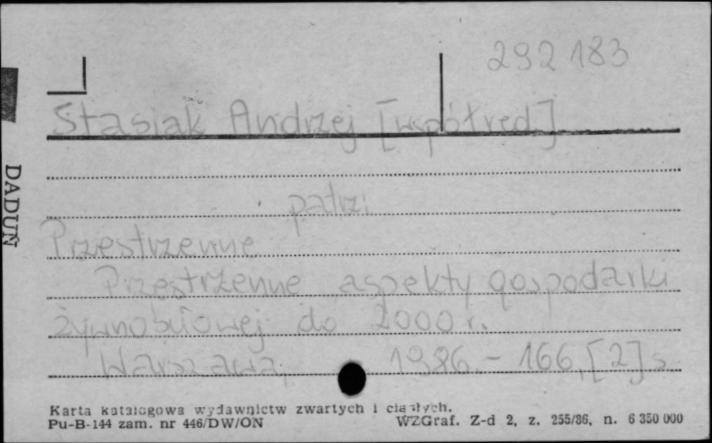 292183
Stasiak Andrzej [współred]
patrz:
Przestrzenne
Przestrzenne aspekty gospodarki
żywnościowej do 2000 r.
Warszawa, 1986. - 166, [2] s.
DADUŃ
Karta katalogowa wydawnictw zwartych i ciągłych.
Pu-B-144 zam. nr 446/DW/ON
WZGraf. Z-d 2, z. 255/86, n. 6 350 000